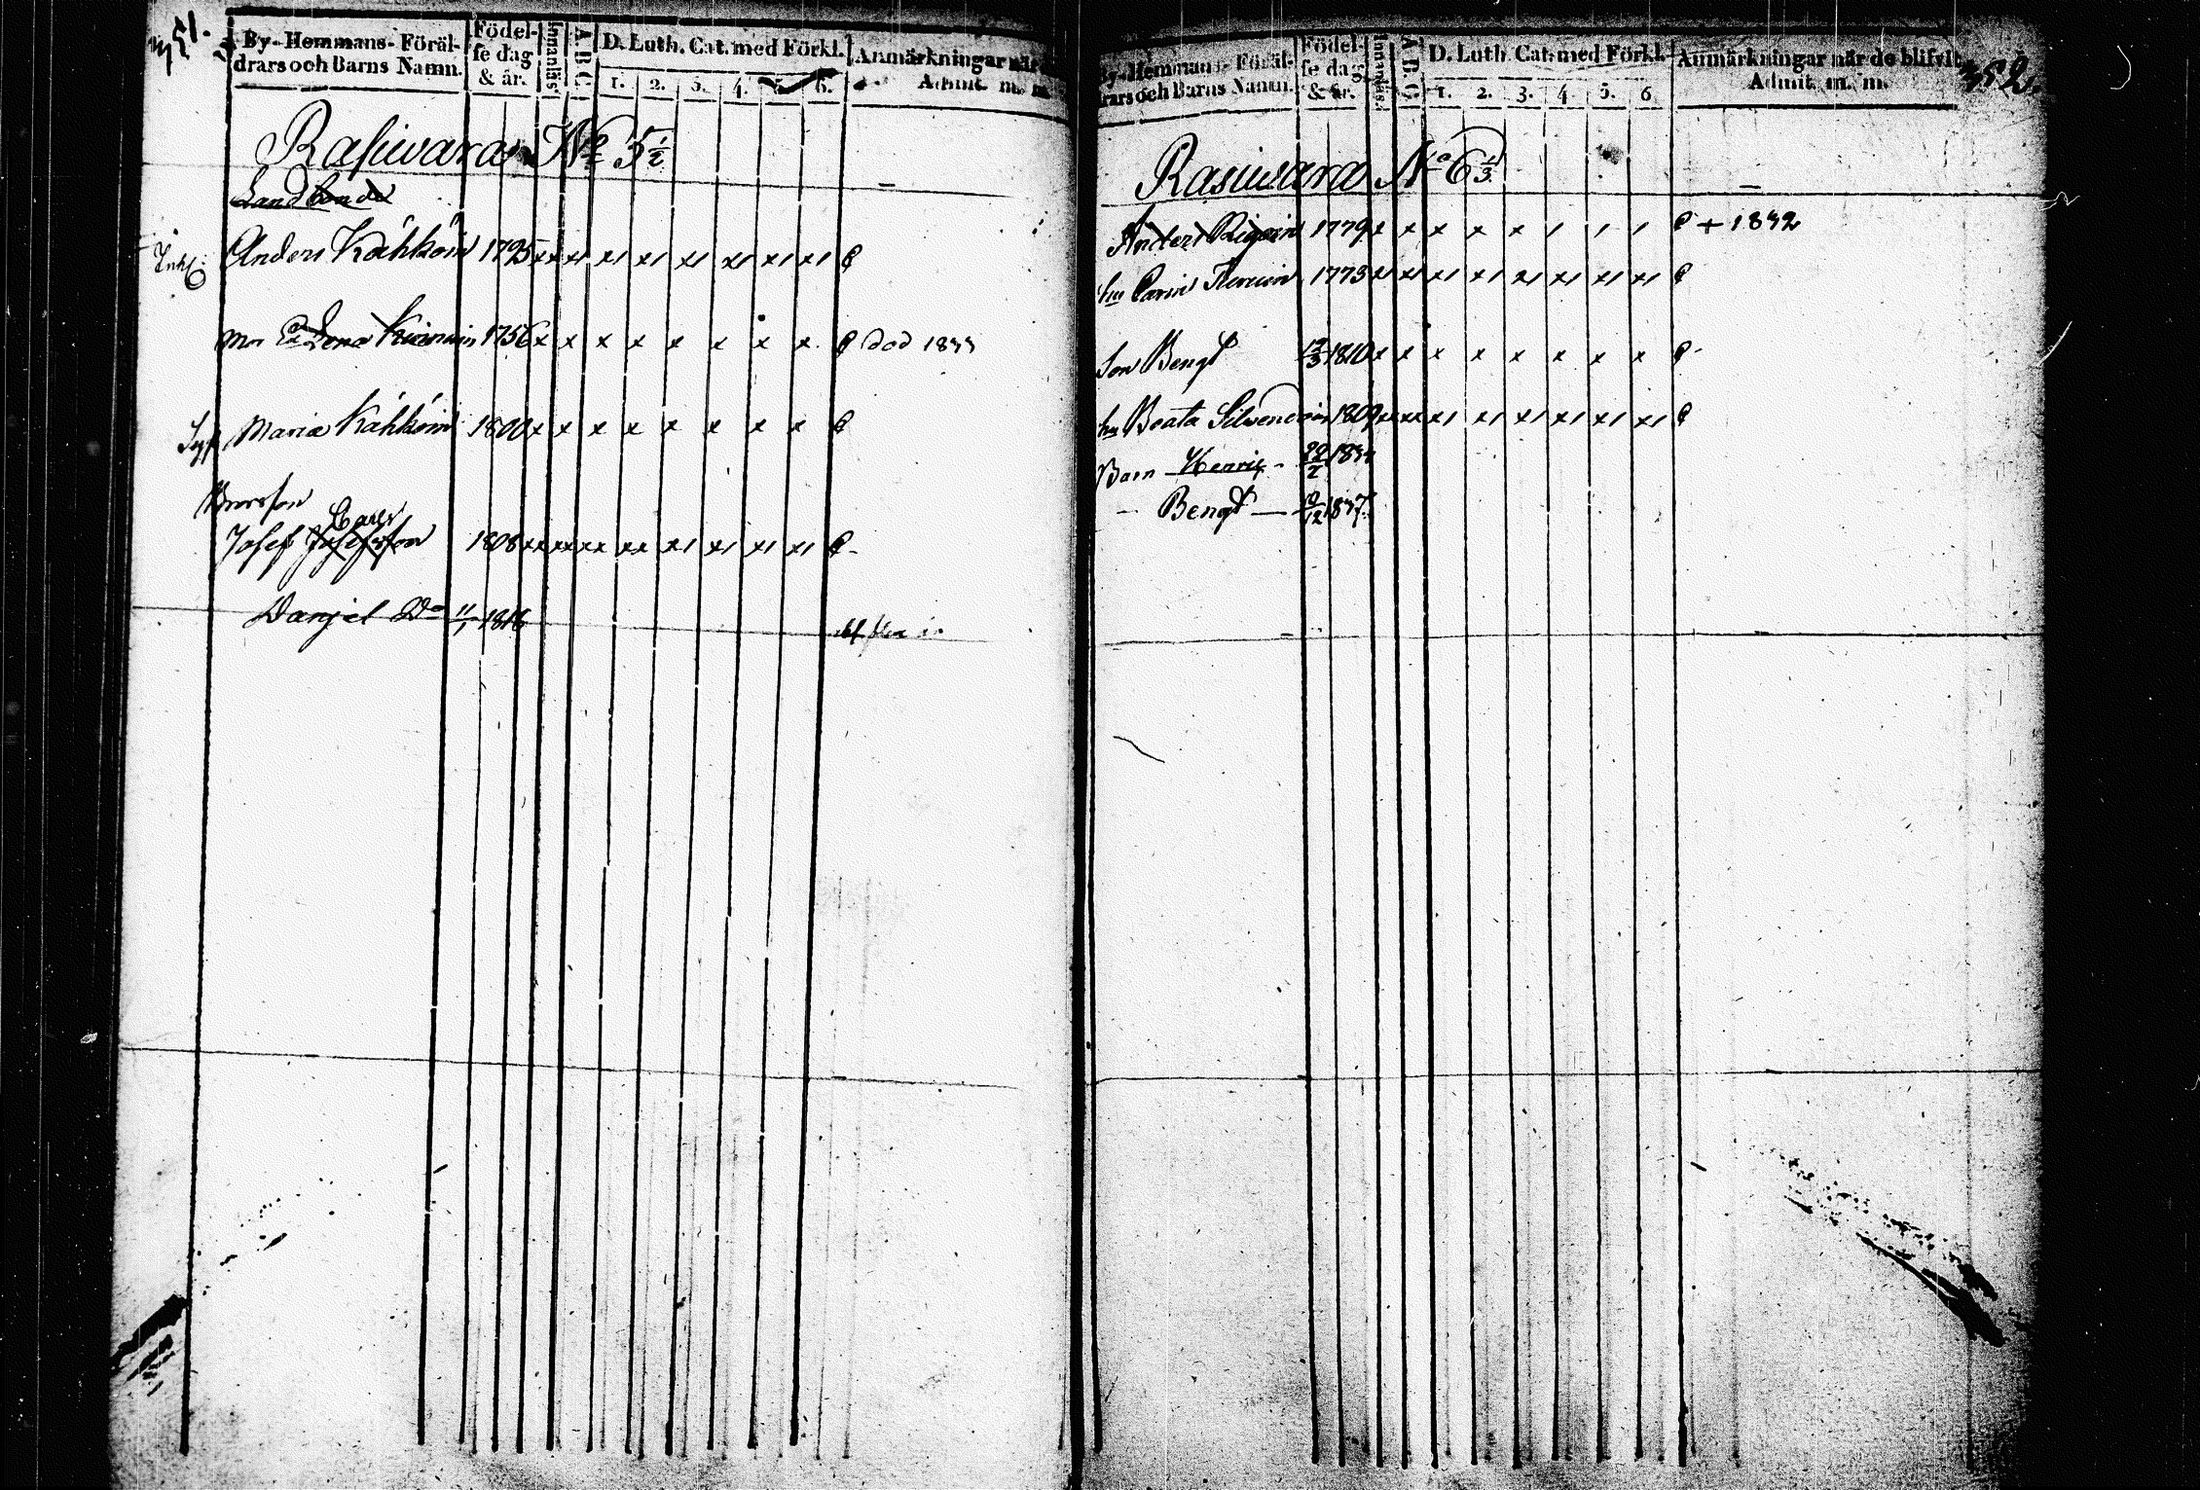 351.
By- Hemmans- Föräl- drars och Barns Namn.
Födel- se dag & år.
Innanläs.
A.B.C.
D. Luth. Cat. med Förkl.
1. 2. 3. 4. 5. 6.
Anmärkningar när
Admit. m. m.
Rasiwara No 5 1/2
Landbonde
Inh. Anders Kähköin 1795 x x x1 x1 x1 x1 x1 x1 x1
Mor Lena 1756 x x x x x x x x död 1833
Syst Maria Kähköin 1800 x x x x x x x x
Brorson
Carls
Josef Josefsson 1808 xx xx xx xx x1 x1 x1 x1
Danjel Do 11/1 1816
352.
By- Hemmans- Föräl- drars och Barns Namn.
Födel- se dag & år.
Innanläs.
A.B.C.
D. Luth. Cat. med Förkl.
1. 2. 3. 4. 5. 6
Anmärkningar när de blifvit
Admit. m. m.
Rasiwara No 6 1/3
Anders 1779 x x x x x 1 1 1 + 1832
hu Carin 1773 x1 x1 x1 x1 x1 x1 x1 x1
Son Bengt 1810 x x x x x x x x
hu Beata Silvendoin 1809 xx xx x1 x1 x1 x1 x1 x1
Barn Henric
Bengt 1837